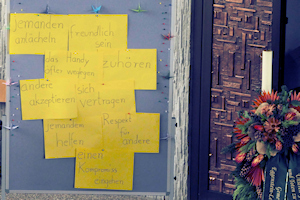 jemanden
anlächeln
freundlich
sein
das Handy
öfter weglegen
zuhören
andere
akzeptieren
sich
vertragen
jemandem
helfen
Respekt
für
andere
einen
Kompromiss
eingehen